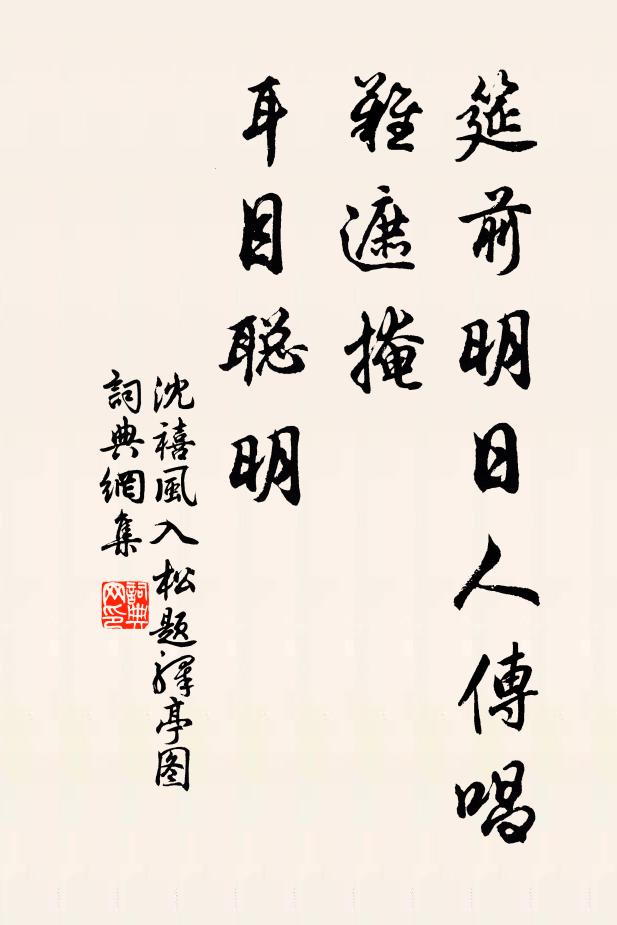 筵前明日人傳唱
難遮掩
耳目聡明
沈禧風入松題驛亭图
詞典網集
詞典网印